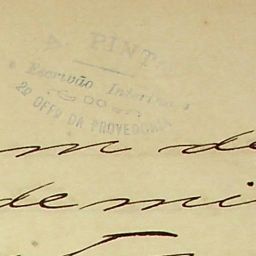 PINT
Escrivão Interino
2º OFFº DA PROVEDORIA
m de
de mi